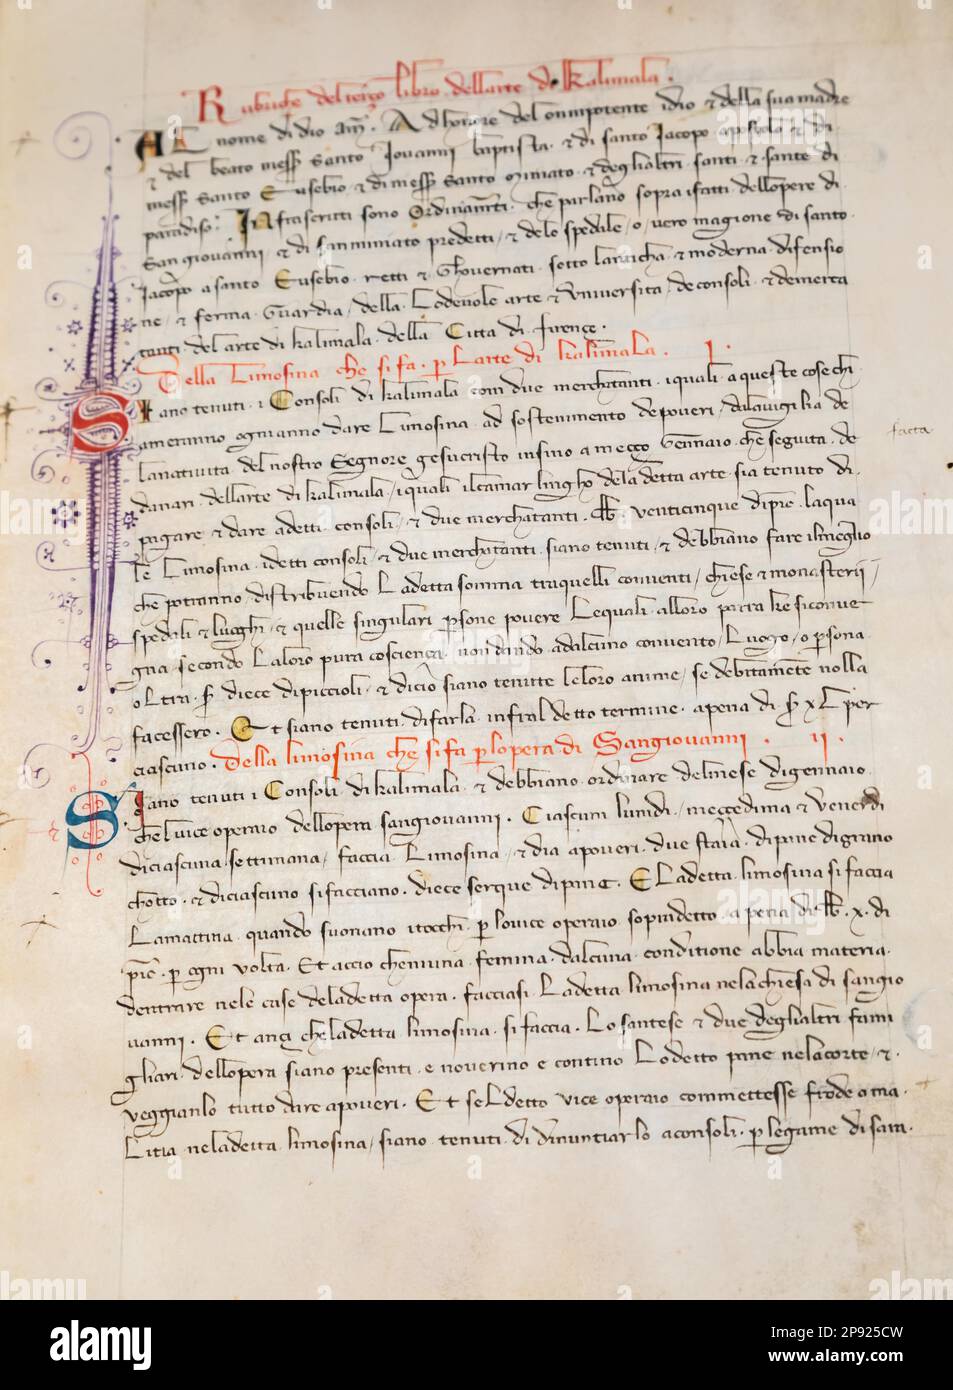 Rubriche del terzo libro dellarte di kalimala.
AL nome di dio am. Ad honore del onnipotente idio & della sua madre
& del beato mess santo Iovanni baptista. & di santo Jacopo apostolo & di
mess santo Eusebio & di mess santo miniato & deglialtri santi & sante di
paradiso. Infrascritti sono Ordinamti. che parlano sopra ifatti dellopere di
San giovanni & di san miniato predetti / & delo spedale / o / vero magione di santo
Jacopo a santo Eusebio retti & ghovernati sotto la
ne / & ferma Guardia / della Lodevole arte & Università de consoli & de merca
tanti del arte di kalimala della Citta di firençe.
Della Limosina che si fa p larte di kalimala. I.
Siano tenuti i Consoli di kalimala con due merchatanti iquali a queste cose chi
ameranno ogni anno dare Limosina ad sostenimento de poveri / dala vigilia de
lanatività del nostro Segnore gesucristo insino a meçço Gennaio che seguita de
danari dellarte di kalimala / iquali il camarlingho dela detta arte sia tenuto di
pagare & dare a detti consoli / & due merchatanti. lb venticinque di pic. laqua
le Limosina idetti consoli / & due merchatanti siano tenuti / & debbiano fare il meglio
che potranno / distribuendo Ladetta somma tra quelli conventi / chiese & monasterii /
spedali & luoghi / & quelle singulari psone povere Lequali alloro parra ke si conve
gna secondo Laloro pura coscienca non dando adalcuno convento / Luogo / o psona
oltra diece di piccioli / & di cio siano tenute leloro anime / se debitamete nolla
facessero. Et siano tenuti di farla infral detto termine. a pena di XL per
ciascuno. Della limosina che si fa p lopera di Sangiovanni. II.
Siano tenuti i Consoli di kalimala & debbiano ordinare del mese di gennaio
che lvice operaio dellopera sangiovanni. Ciascun lunidi / mecçedima & Venerdi
di ciascuna settimana / faccia Limosina / & dia a poveri due staia di pane di grano
chotto. & di ciascuno si facciano diece serque di pane. E ladetta limosina si faccia
Lamattina quando suonano i tocchi p lo vice operaio sopradetto a pena di lb. x. di
pic. p ogni volta. Et accio che niuna femina dalcuna conditione abbia materia
dentrare nele case deladetta opera. facciasi Ladetta limosina nela chiesa di sangio
vanni. Et ançi che ladetta limosina si faccia. Lo santese & due deglialtri fami
gliari dellopera siano presenti e noverino e contino Lodetto pane nela corte / &
veggianlo tutto dare a poveri. Et sel detto vice operaio commettesse frode o ma
Litia neladetta limosina / siano tenuti di dinuntiarlo a consoli p legame di sara
facta
alamy
Image ID: 2P925CW
www.alamy.com